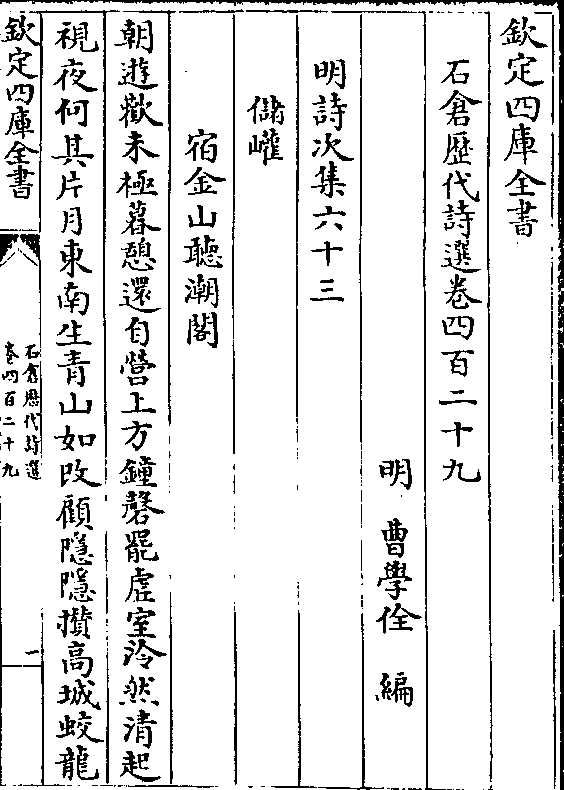 欽定四庫全書
石倉歴代詩選卷四百二十九
明　曹學佺　編
明詩次集六十三
儲巏
宿金山聽潮閣
朝遊歡未極暮憩還自營上方鐘磬罷虚室泠然清起
視夜何其片月東南生青山如改顧隱隱攅高城蛟龍
欽定四庫全書
石倉歴代詩選
卷四百二十九
一